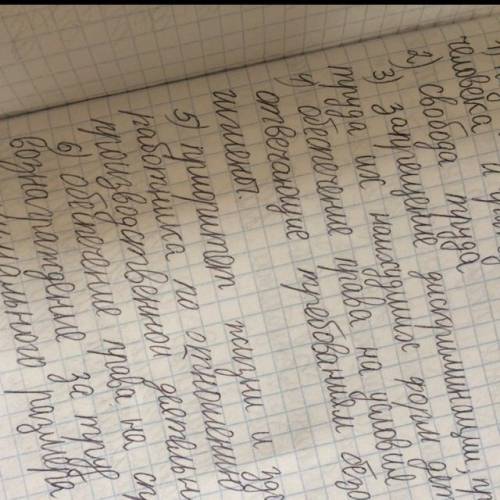 человека и
2) свобода труда
3) запрещение дискриминации,
труда их наихудших форм
4) обеспечение права на условие
отвечающие требованиям без
гигиены.
5) приоритет жизни и зд
работника по отношению
производственной деятельн
6) обеспечение права на сп
вознаграждение за труд
размера